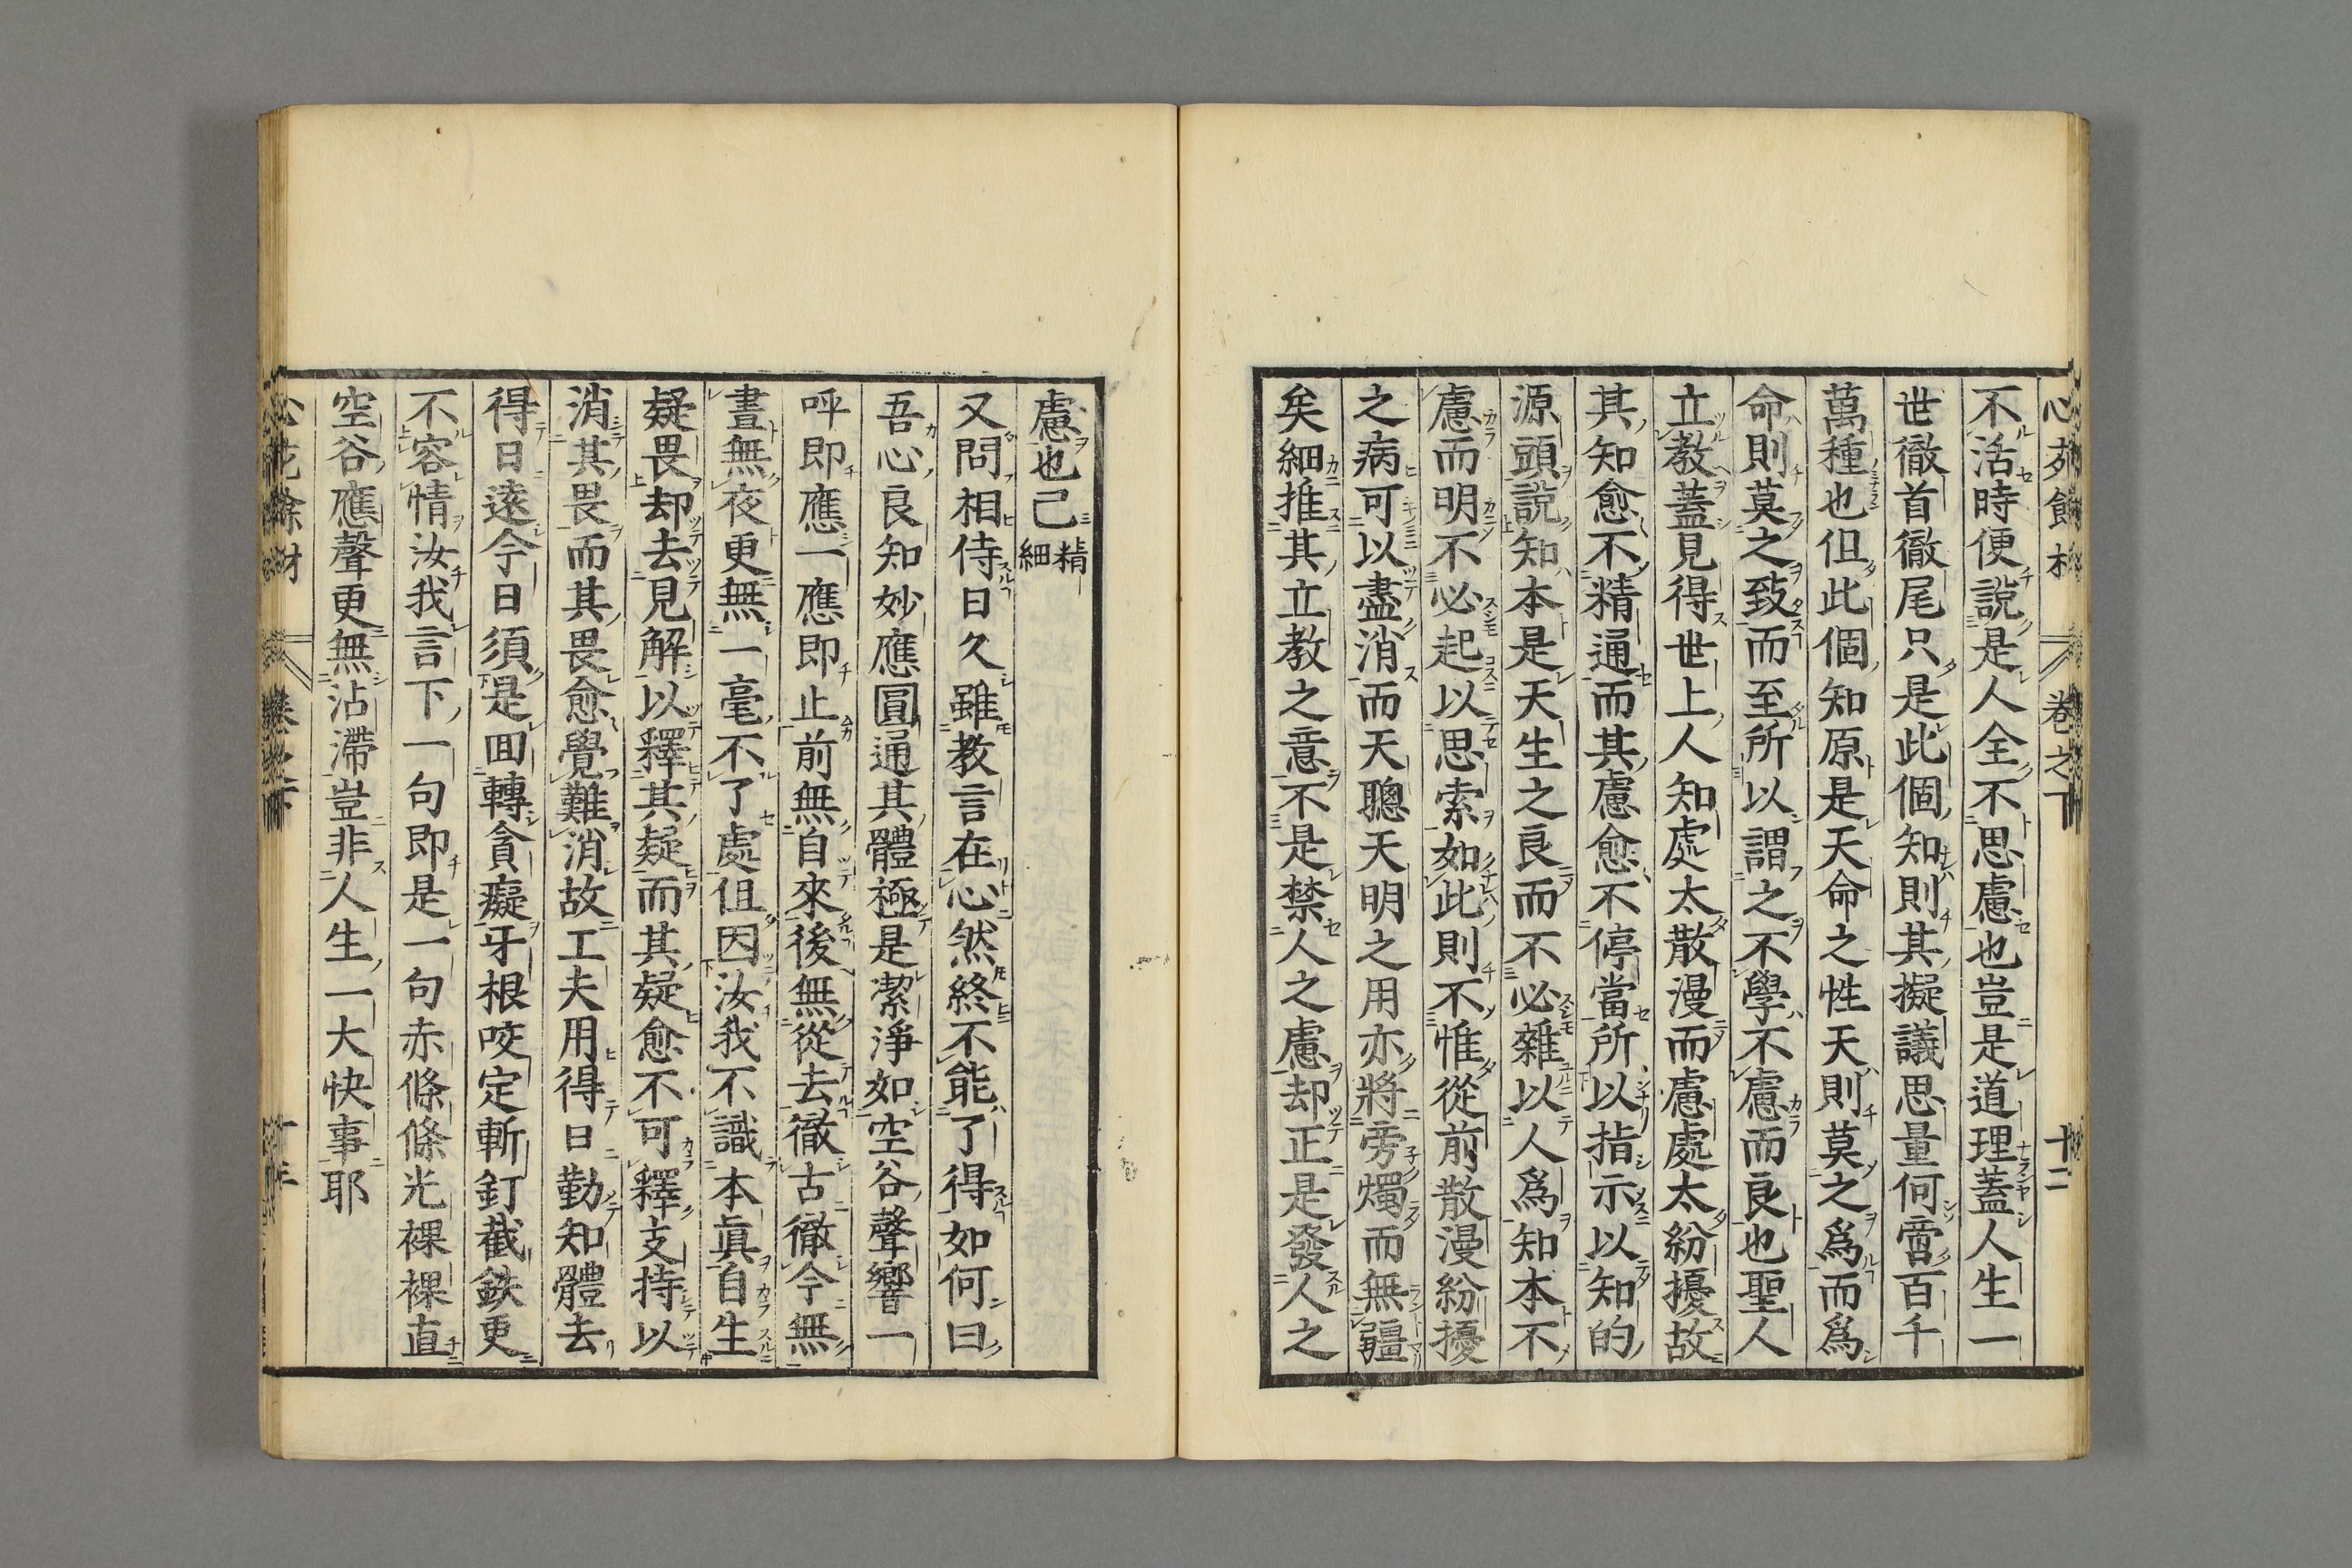 卷之下
十二
不活時便說是人全不思慮也豈是道理蓋人生一
世徹首徹尾只是此個知則其擬議思量何啻百千
萬種也但此個知原是天命之性天則莫之爲而爲
命則莫之致而至所以謂之不學不慮而良也聖人
立教蓋見得世上人知處太散漫而慮處太紛擾故
其知愈不精通而其慮愈不停當所以指示以知的
源頭說知本是天生之良而不必雜以人爲知本不
慮而明不必起以思索如此則不惟從前散漫紛擾
之病可以盡消而天聰天明之用亦將旁燭而無疆
矣細推其立教之意不是禁人之慮却正是發人之
慮也已精細
又問相侍日久雖教言在心然終不能了得如何曰
吾心良知妙應圓通其體極是潔淨如空谷聲響一
呼即應一應即止前無自來後無從去徹古徹今無
晝無夜更無一毫不了處但因汝我不識本眞自生
疑畏却去見解以釋其疑而其疑愈不可釋支持以
消其畏而其畏愈覺難消故工夫用得日勤知體去
得日遠今日須是回轉貪癡牙根咬定斬釘截鉄更
不容情汝我言下一句即是一句赤條條光裸裸直
空谷應聲更無沾滯豈非人生一大快事耶